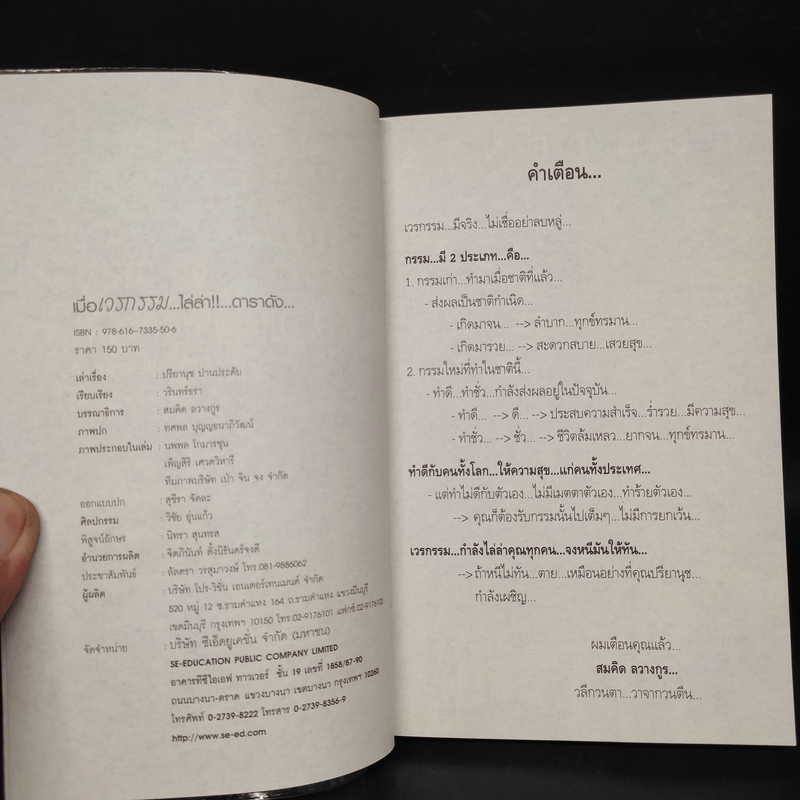 เมื่อเวรกรรม...ไล่ล่า!!...ดาราดัง...
ISBN : 978-616-7335-50-6
ราคา 150 บาท
เล่าเรื่อง : ปรียานุช ปานประดับ
เรียบเรียง : วรินทร์ธรา
บรรณาธิการ : สมคิด ลวางกูร
ภาพปก : ทศพล บุญญธนาภิวัฒน์
ภาพประกอบในเล่ม : นพพล โกมารชุน
เพ็ญสิริ เศวตวิหารี
ทีมภาพบริษัท เป่า จิน จง จำกัด
ออกแบบปก : สุชีรา จัดละ
ศิลปกรรม : วิชัย อุ่นแก้ว
พิสูจน์อักษร : นิทรา สุนทรส
อำนวยการผลิต : จิตภินันท์ ตั้งนิรันดร์จงดี
ประชาสัมพันธ์ : ลัลตรา วรสุมาวงษ์ โทร.081-9886062
ผู้ผลิต : บริษัท โปร-วิชั่น เอนเตอร์เทนเมนต์ จำกัด
520 หมู่ 12 ซ.รามคำแหง 164 ถ.รามคำแหง แขวงมีนบุรี
เขตมีนบุรี กรุงเทพฯ 10150 โทร.02-9176101 แฟกซ์.02-9176102
จัดจำหน่าย : บริษัท ซีเอ็ดยูเคชั่น จำกัด (มหาชน)
SE-EDUCATION PUBLIC COMPANY LIMITED
อาคารทีซีไอเอฟ ทาวเวอร์ ชั้น 19 เลขที่ 1858/87-90
ถนนบางนา-ตราด แขวงบางนา เขตบางนา กรุงเทพฯ 10260
โทรศัพท์ 0-2739-8222 โทรสาร 0-2739-8356-9
http://www.se-ed.com
คำเตือน...
เวรกรรม...มีจริง...ไม่เชื่ออย่าลบหลู่...
กรรม...มี 2 ประเภท...คือ...
1. กรรมเก่า...ทำมาเมื่อชาติที่แล้ว...
- ส่งผลเป็นชาติกำเนิด...
- เกิดมาจน... --> ลำบาก...ทุกข์ทรมาน...
- เกิดมารวย... --> สะดวกสบาย...เสวยสุข...
2. กรรมใหม่ที่ทำในชาตินี้...
- ทำดี...ทำชั่ว...กำลังส่งผลอยู่ในปัจจุบัน...
- ทำดี... --> ดี... --> ประสบความสำเร็จ...ร่ำรวย...มีความสุข...
- ทำชั่ว... --> ชั่ว... --> ชีวิตล้มเหลว...ยากจน...ทุกข์ทรมาน...
ทำดีกับคนทั้งโลก...ให้ความสุข...แก่คนทั้งประเทศ...
- แต่ทำไม่ดีกับตัวเอง...ไม่มีเมตตาตัวเอง...ทำร้ายตัวเอง...
--> คุณก็ต้องรับกรรมนั้นไปเต็มๆ...ไม่มีการยกเว้น...
เวรกรรม...กำลังไล่ล่าคุณทุกคน...จงหนีมันให้ทัน...
--> ถ้าหนีไม่ทัน...ตาย...เหมือนอย่างที่คุณปรียานุช...
กำลังเผชิญ...
ผมเตือนคุณแล้ว...
สมคิด ลวางกูร...
วลีกวนตา...วาจากวนตีน...